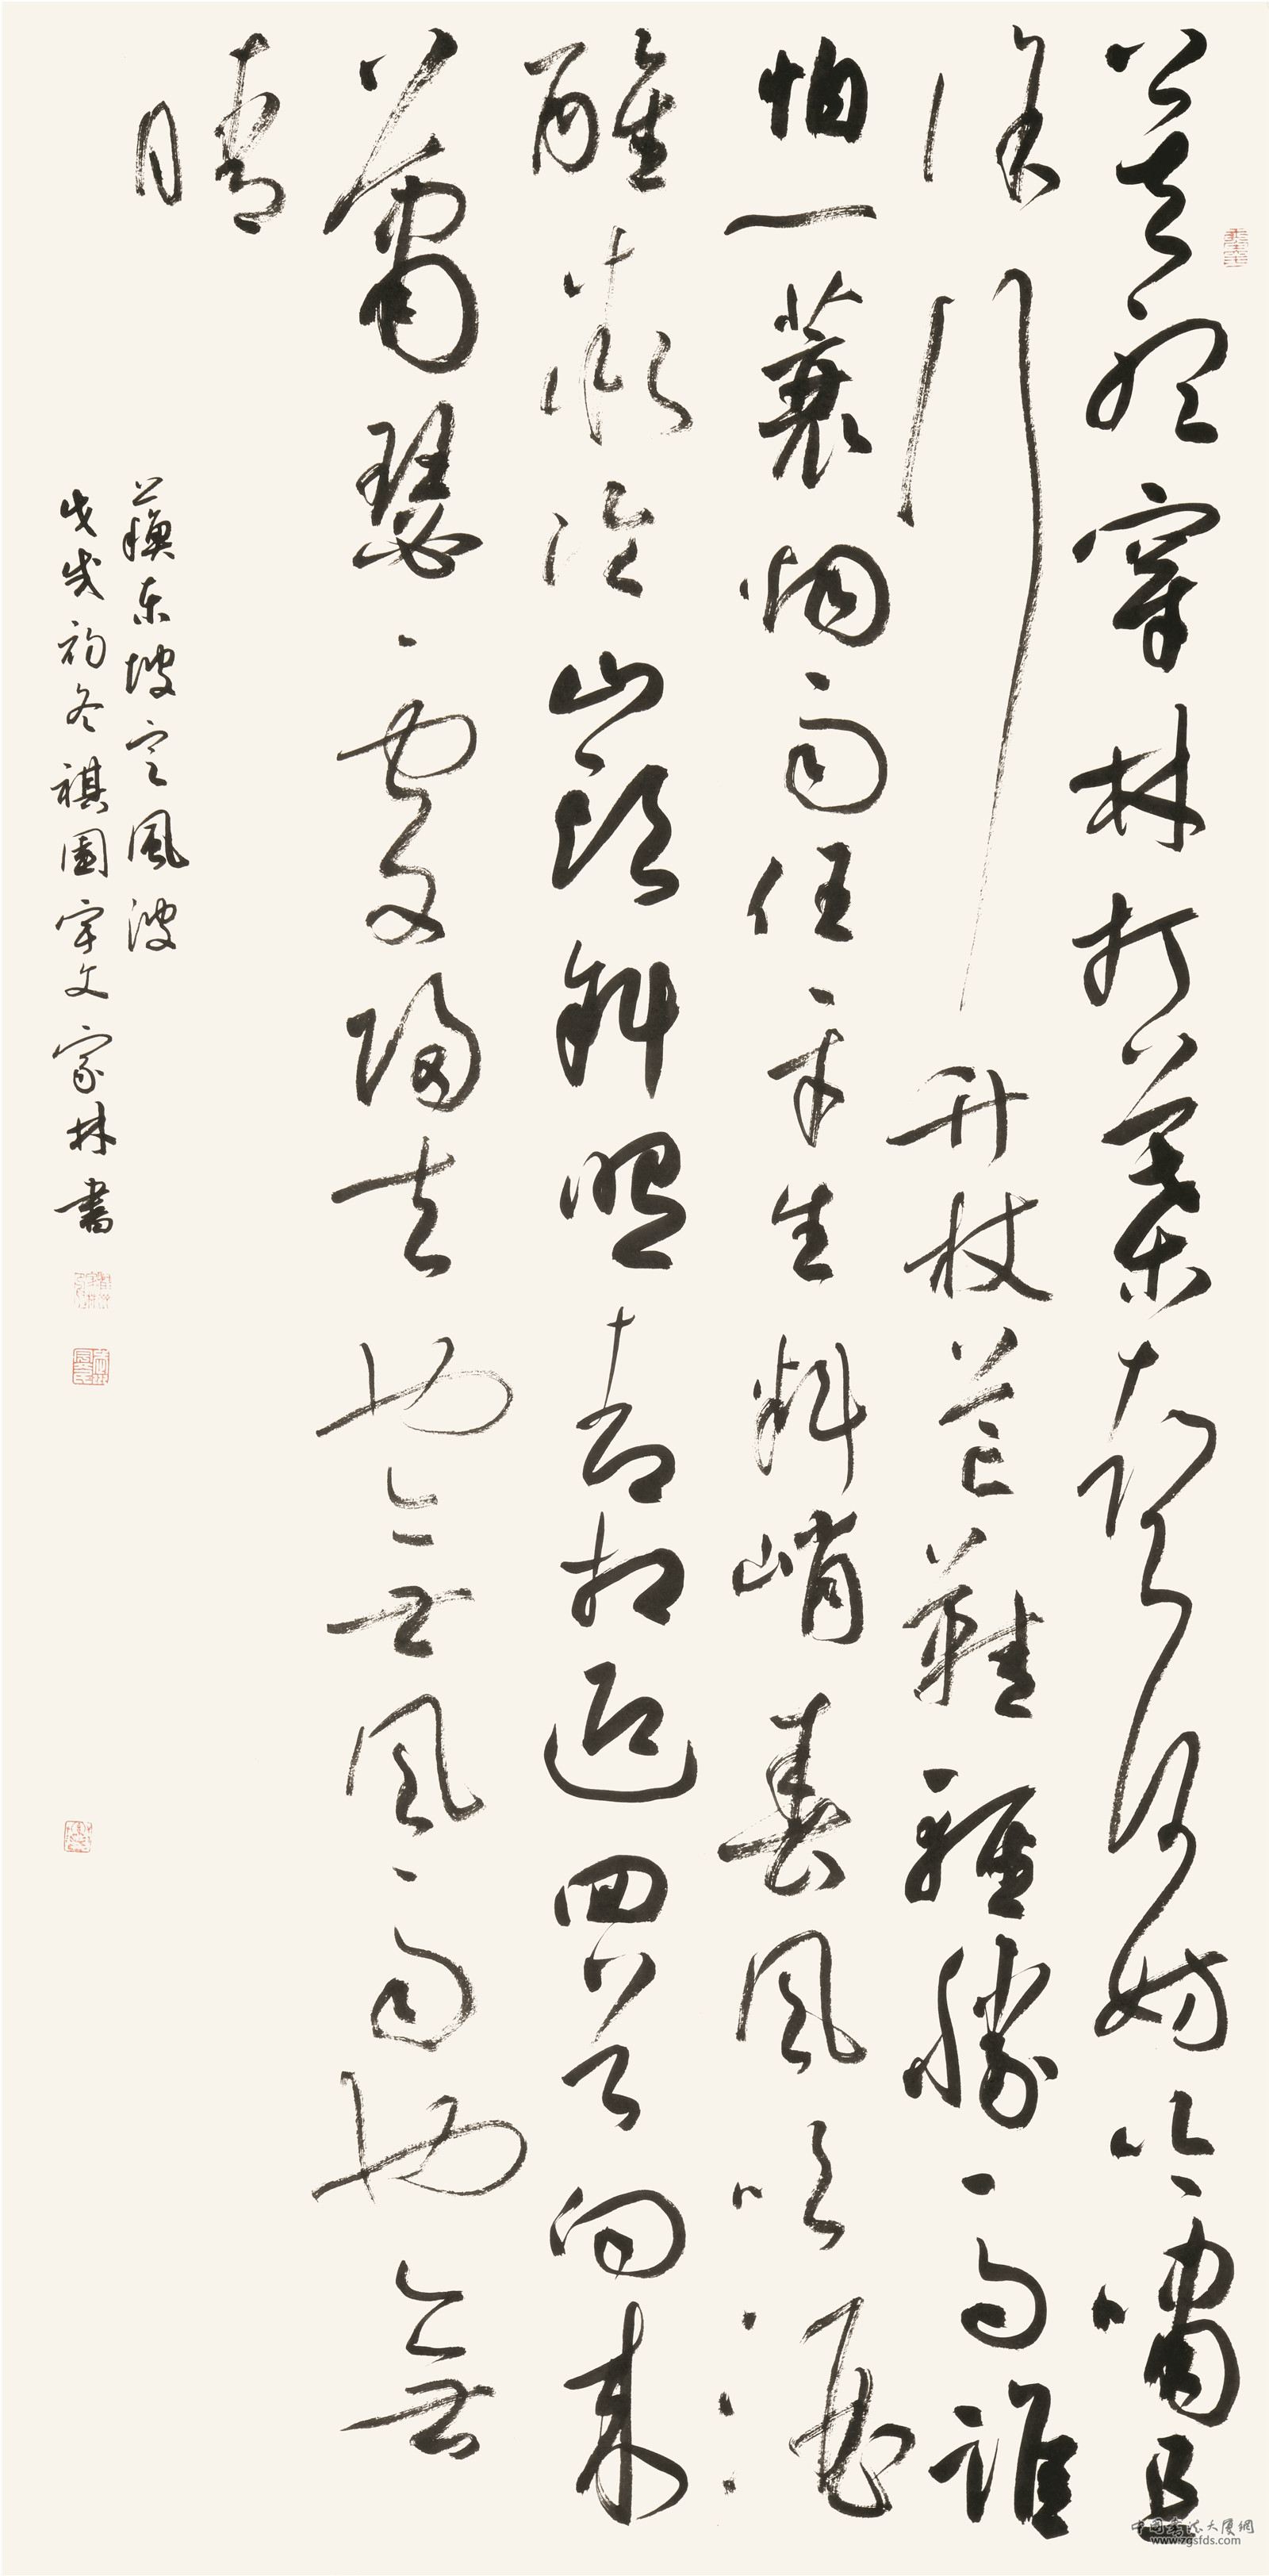 莫聽穿林打葉聲何妨吟嘯且
徐行竹杖芒鞋輕勝馬誰
怕一蓑烟雨任平生料峭春風吹酒
醒微冷山頭斜照却相迎回首向來
蕭瑟處歸去也無風雨也無
晴
蘇東坡定風波
戊戌初冬祺園宇文家林書
中国書法大廈網
www.zgsfds.com